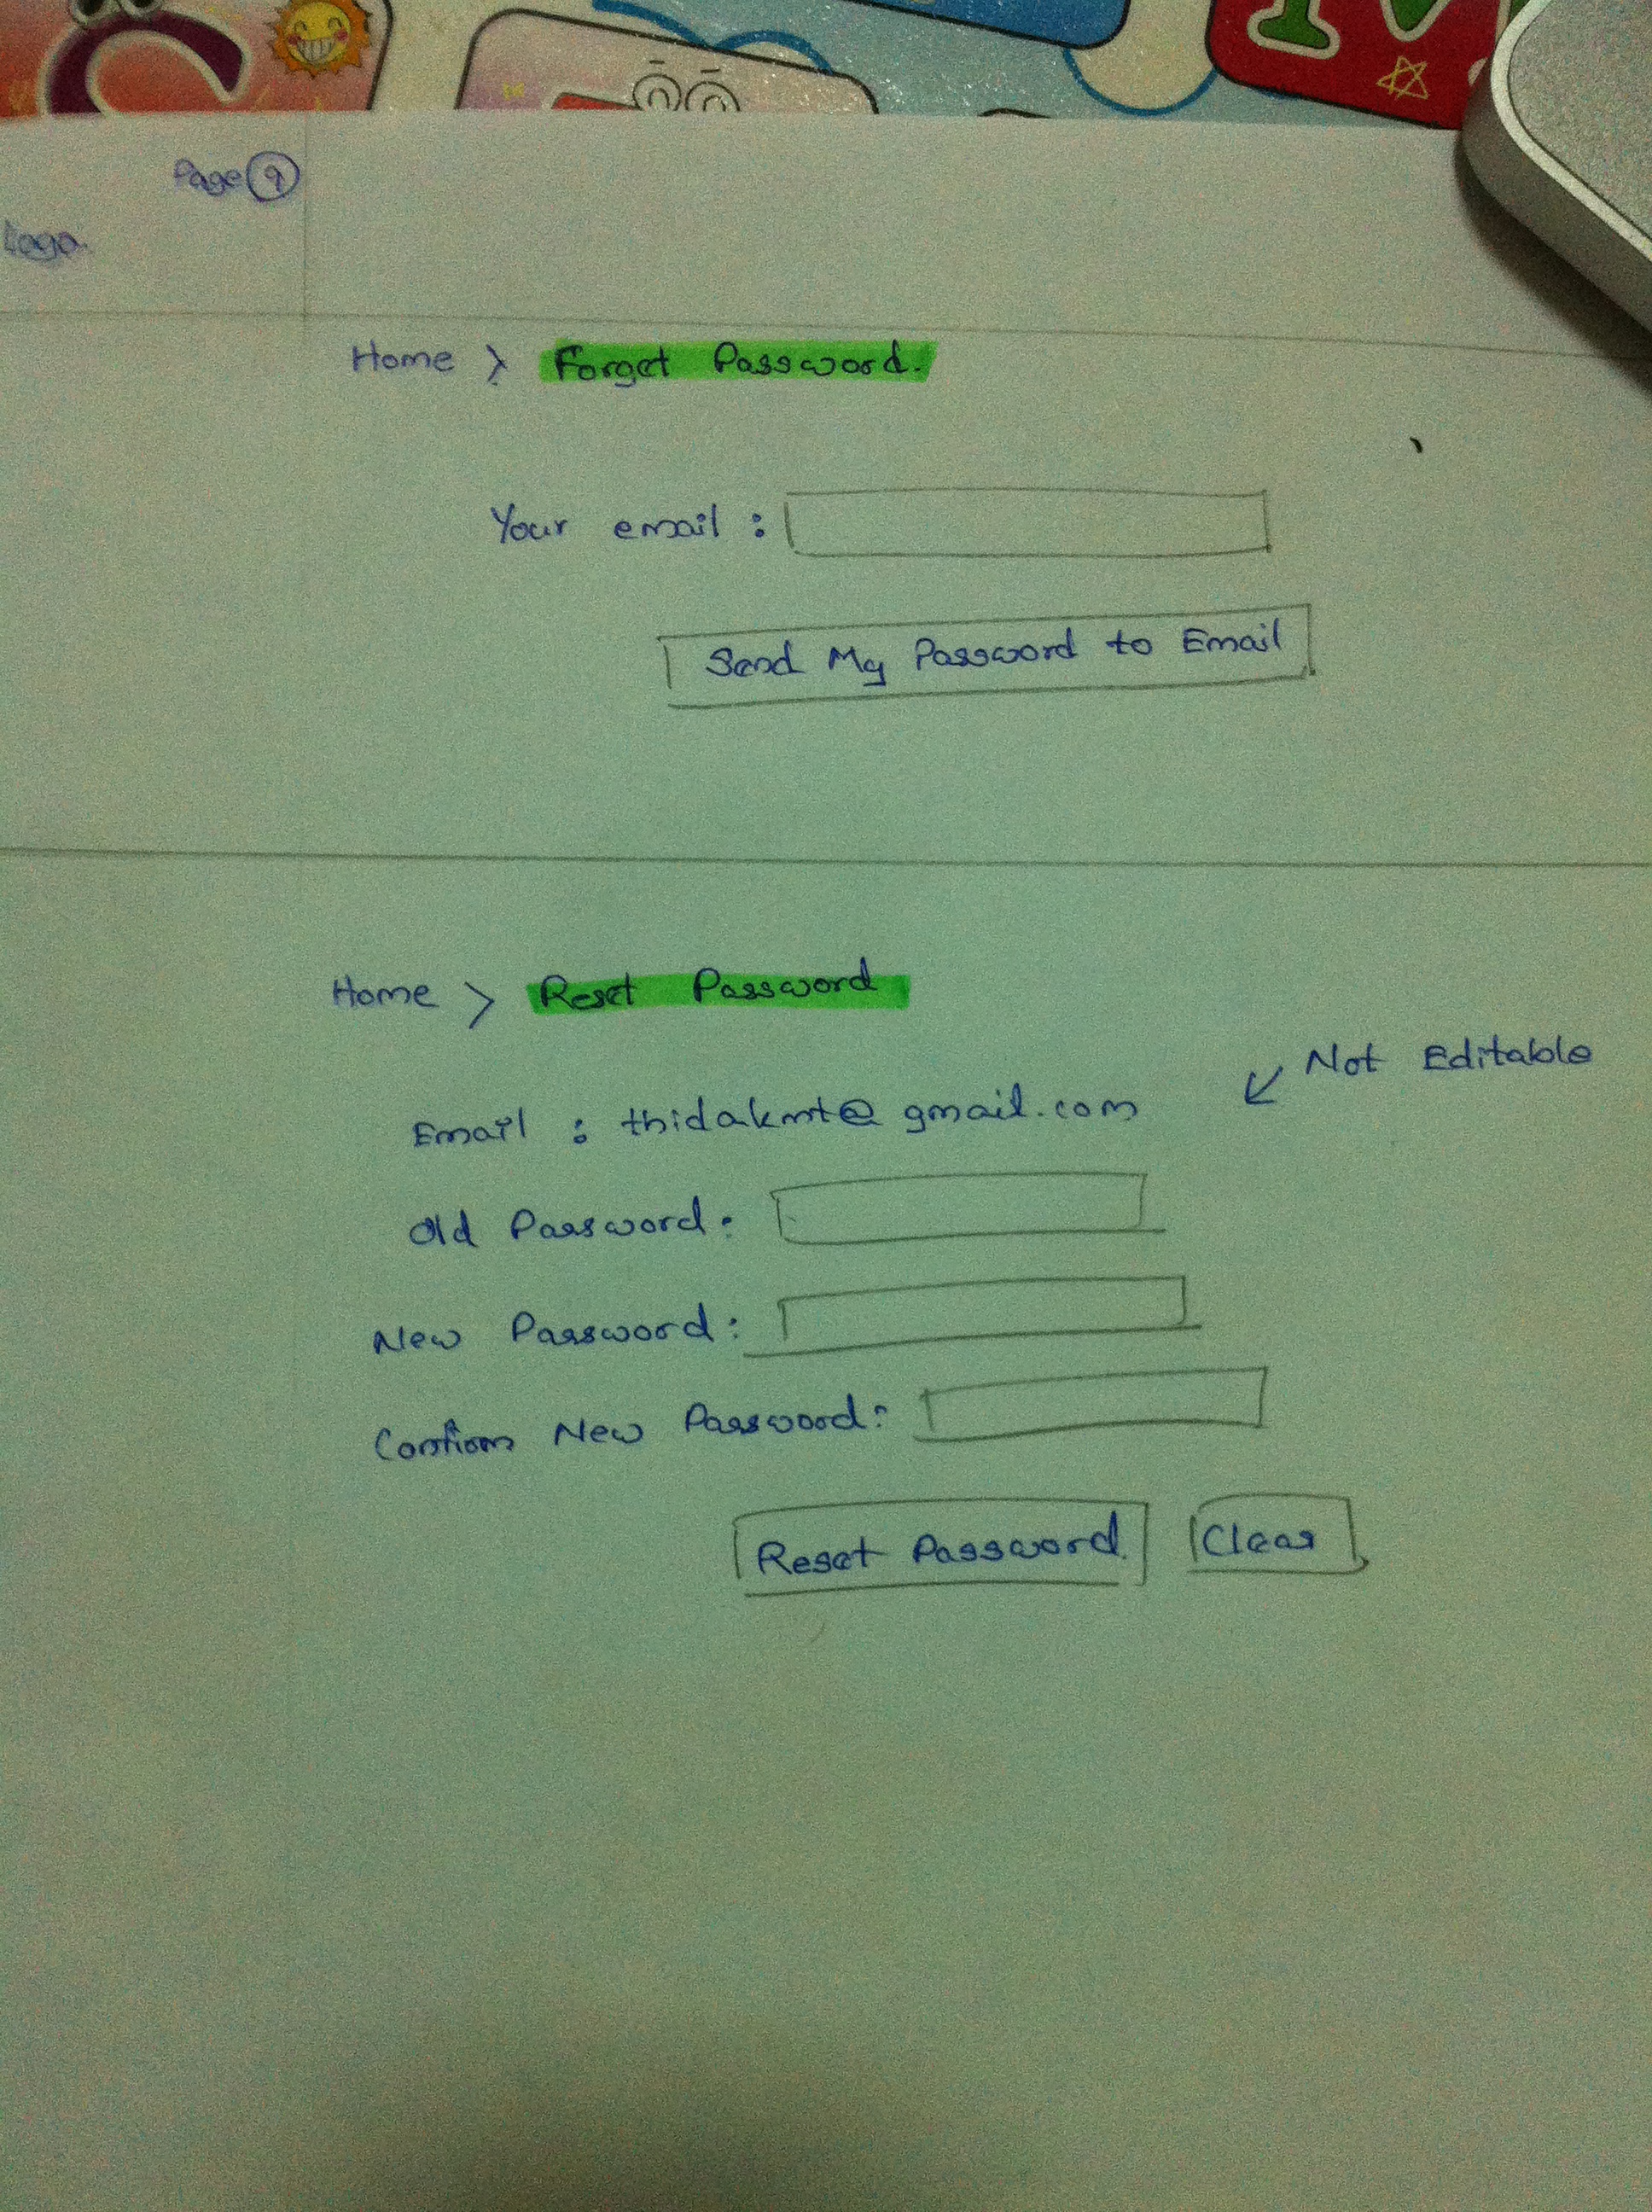 Page 9
Logo.
Home > Forget Password.
Your email :
Send My Password to Email
Home > Reset Password
Not Editable
Email : thidakmt@gmail.com
Old Password:
New Password:
Confirm New Password:
Reset Password
Clear